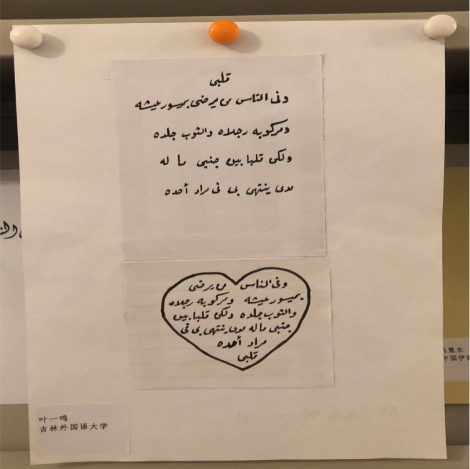 قلبي
وفى الناس من يرضى بميسور عيشه
ومركوبه رجلاه والثوب جلده
ولكن قلبا بين جنبى ما له
مدى ينتهى بى فى مراد أحده
وفى الناس من يرضى
بميسور عيشه ومركوبه رجلاه
والثوب جلده ولكن قلبا بين
جنبى ما له مدى ينتهى بى فى
مراد أحده
قلبي
叶一鸣
吉林外国语大学
中国伊